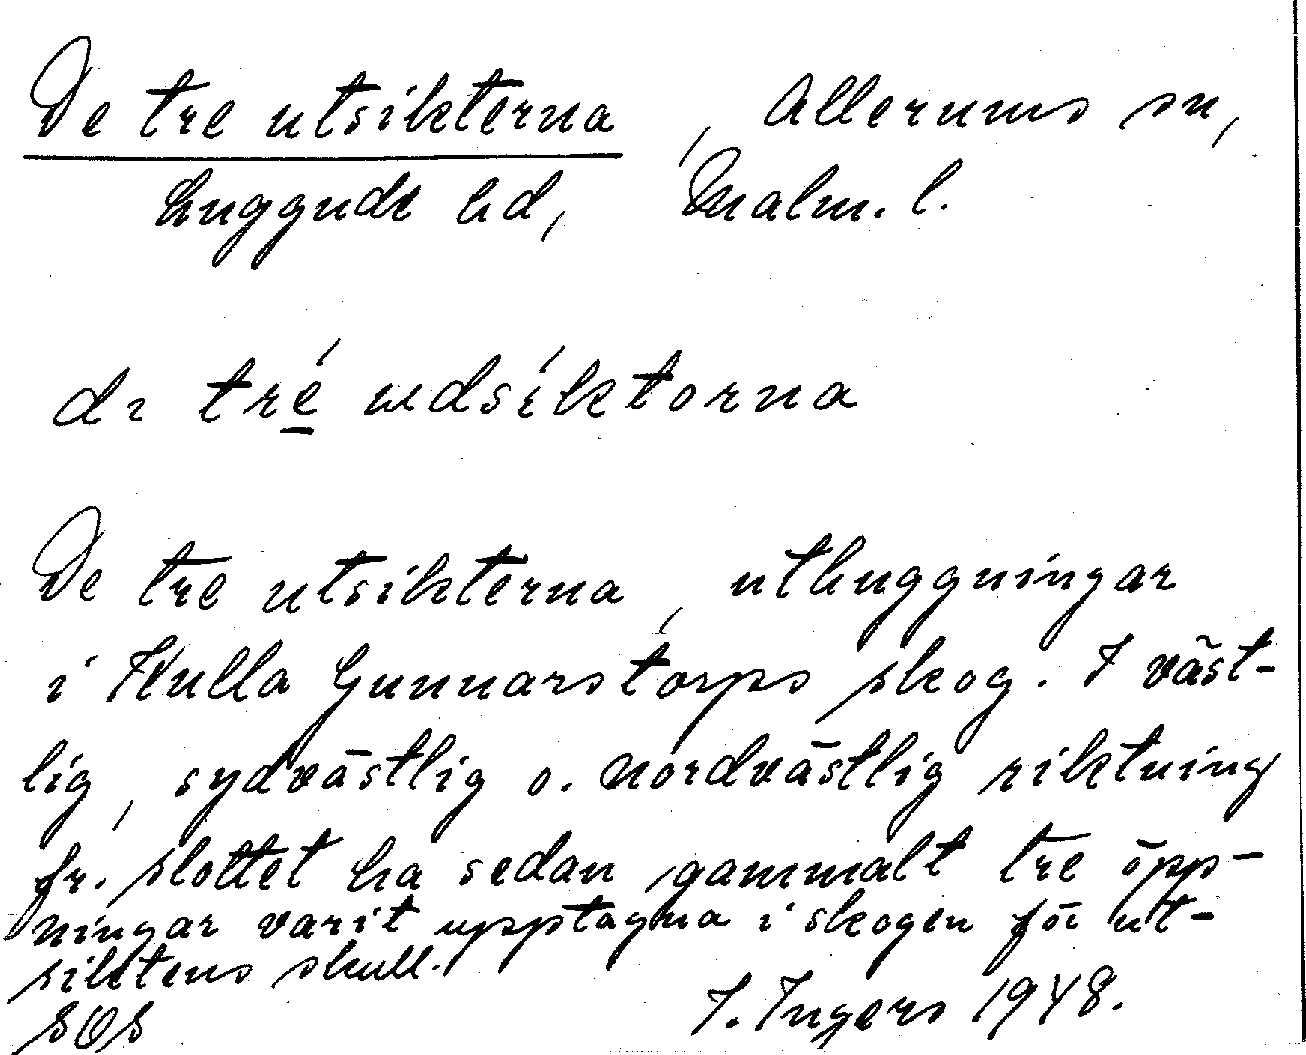 De tre utsikterna, Allerums sn,
Luggude hd, Malm. l.
dɩ tré udsíktorna
De tre utsikterna, uthuggningar
i Kulla Gunnarstorps skog. I väst-
lig, sydvästlig o. nordvästlig riktning
fr. slottet ha sedan gammalt tre öpp-
ningar varit upptagna i skogen för ut-
siktens skull.
SOS I. Ingers 1948.